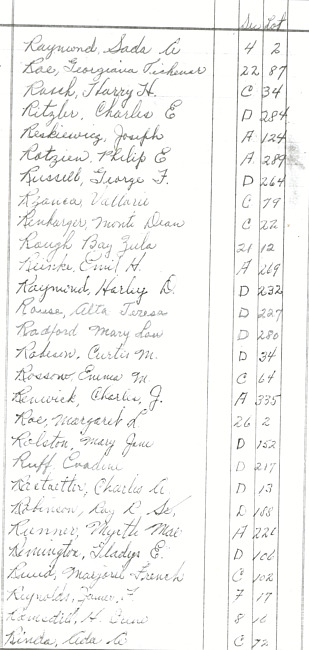 Sec Lot
Raymond, Sada A 4 2
Roe, Georgiana Tichenor 22 87
Rasch, Harry H. C 34
Ritzler, Charles E D 284
Reskiewicz, Joseph A 124
Rotzien, Philip E A 289
Russell, George F. D 264
Rzanca, Vallarie C 79
Renharger, Monte Dean C 22
Rough Bay Zula 21 12
Reinke, Emil H. A 269
Raymond, Harley D. D 232
Rouse, Alta Teresa D 227
Radford Mary Lou D 280
Robison, Curtis M. D 34
Rossow, Emma M. C 64
Renwick, Charles, J. A 335
Roe, Margaret L 26 2
Rolston, Mary Jane D 152
Ruff Evadine D 217
Charles A. D 13
Robinson, Ray R Sr. D 188
Runner, Myrtle Mae A 226
Remington, Gladys E. D 106
Marjorie French C 102
Reynolds, F. 7 17
H. 8 10
Rinda, Ada A C 72